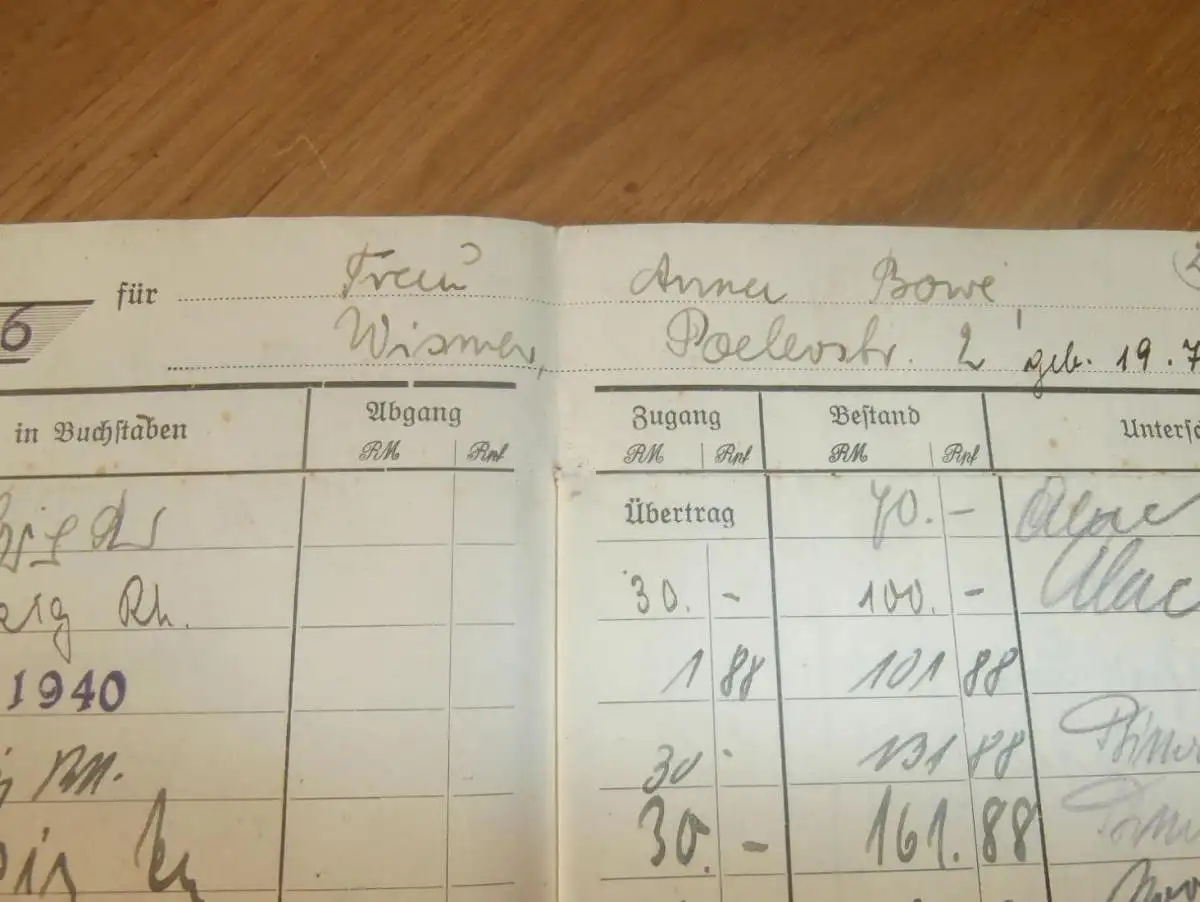 für Frau Anna Bowe
6 Wismar, Poelerstr. 2 geb. 19.7
in Buchstaben Abgang Zugang Bestand Untersc
RM Rpf RM Rpf RM Rpf
Übertrag 70. -
zig Rh. 30. - 100. -
1940 1 88 101 88
RM. 30 - 131 88
zig 30. - 161. 88